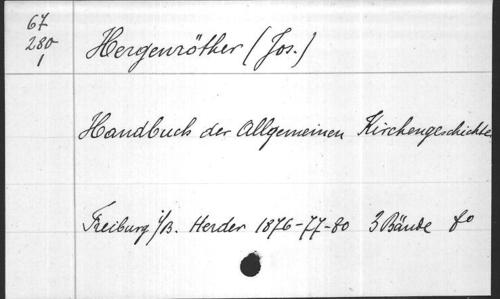 67
280
1
Hergenröther (Jos.)
Handbuch der Allgemeinen Kirchengeschichte
Freiburg i/B. Herder 1876-77-80 3 Bände 8º